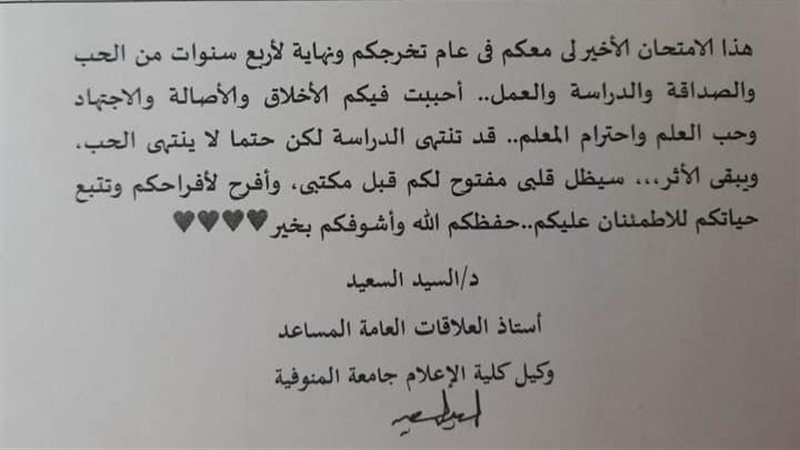 هذا الامتحان الأخير لى معكم فى عام تخرجكم ونهاية لأربع سنوات من الحب
والصداقة والدراسة والعمل.. أحببت فيكم الأخلاق والأصالة والاجتهاد
وحب العلم واحترام المعلم.. قد تنتهى الدراسة لكن حتما لا ينتهى الحب،
ويبقى الأثر،،، سيظل قلبى مفتوح لكم قبل مكتبى، وأفرح لأفراحكم وتتبع
حياتكم للاطمئنان عليكم..حفظكم الله وأشوفكم بخير♥♥♥♥
د/السيد السعيد
أستاذ العلاقات العامة المساعد
وكيل كلية الإعلام جامعة المنوفية